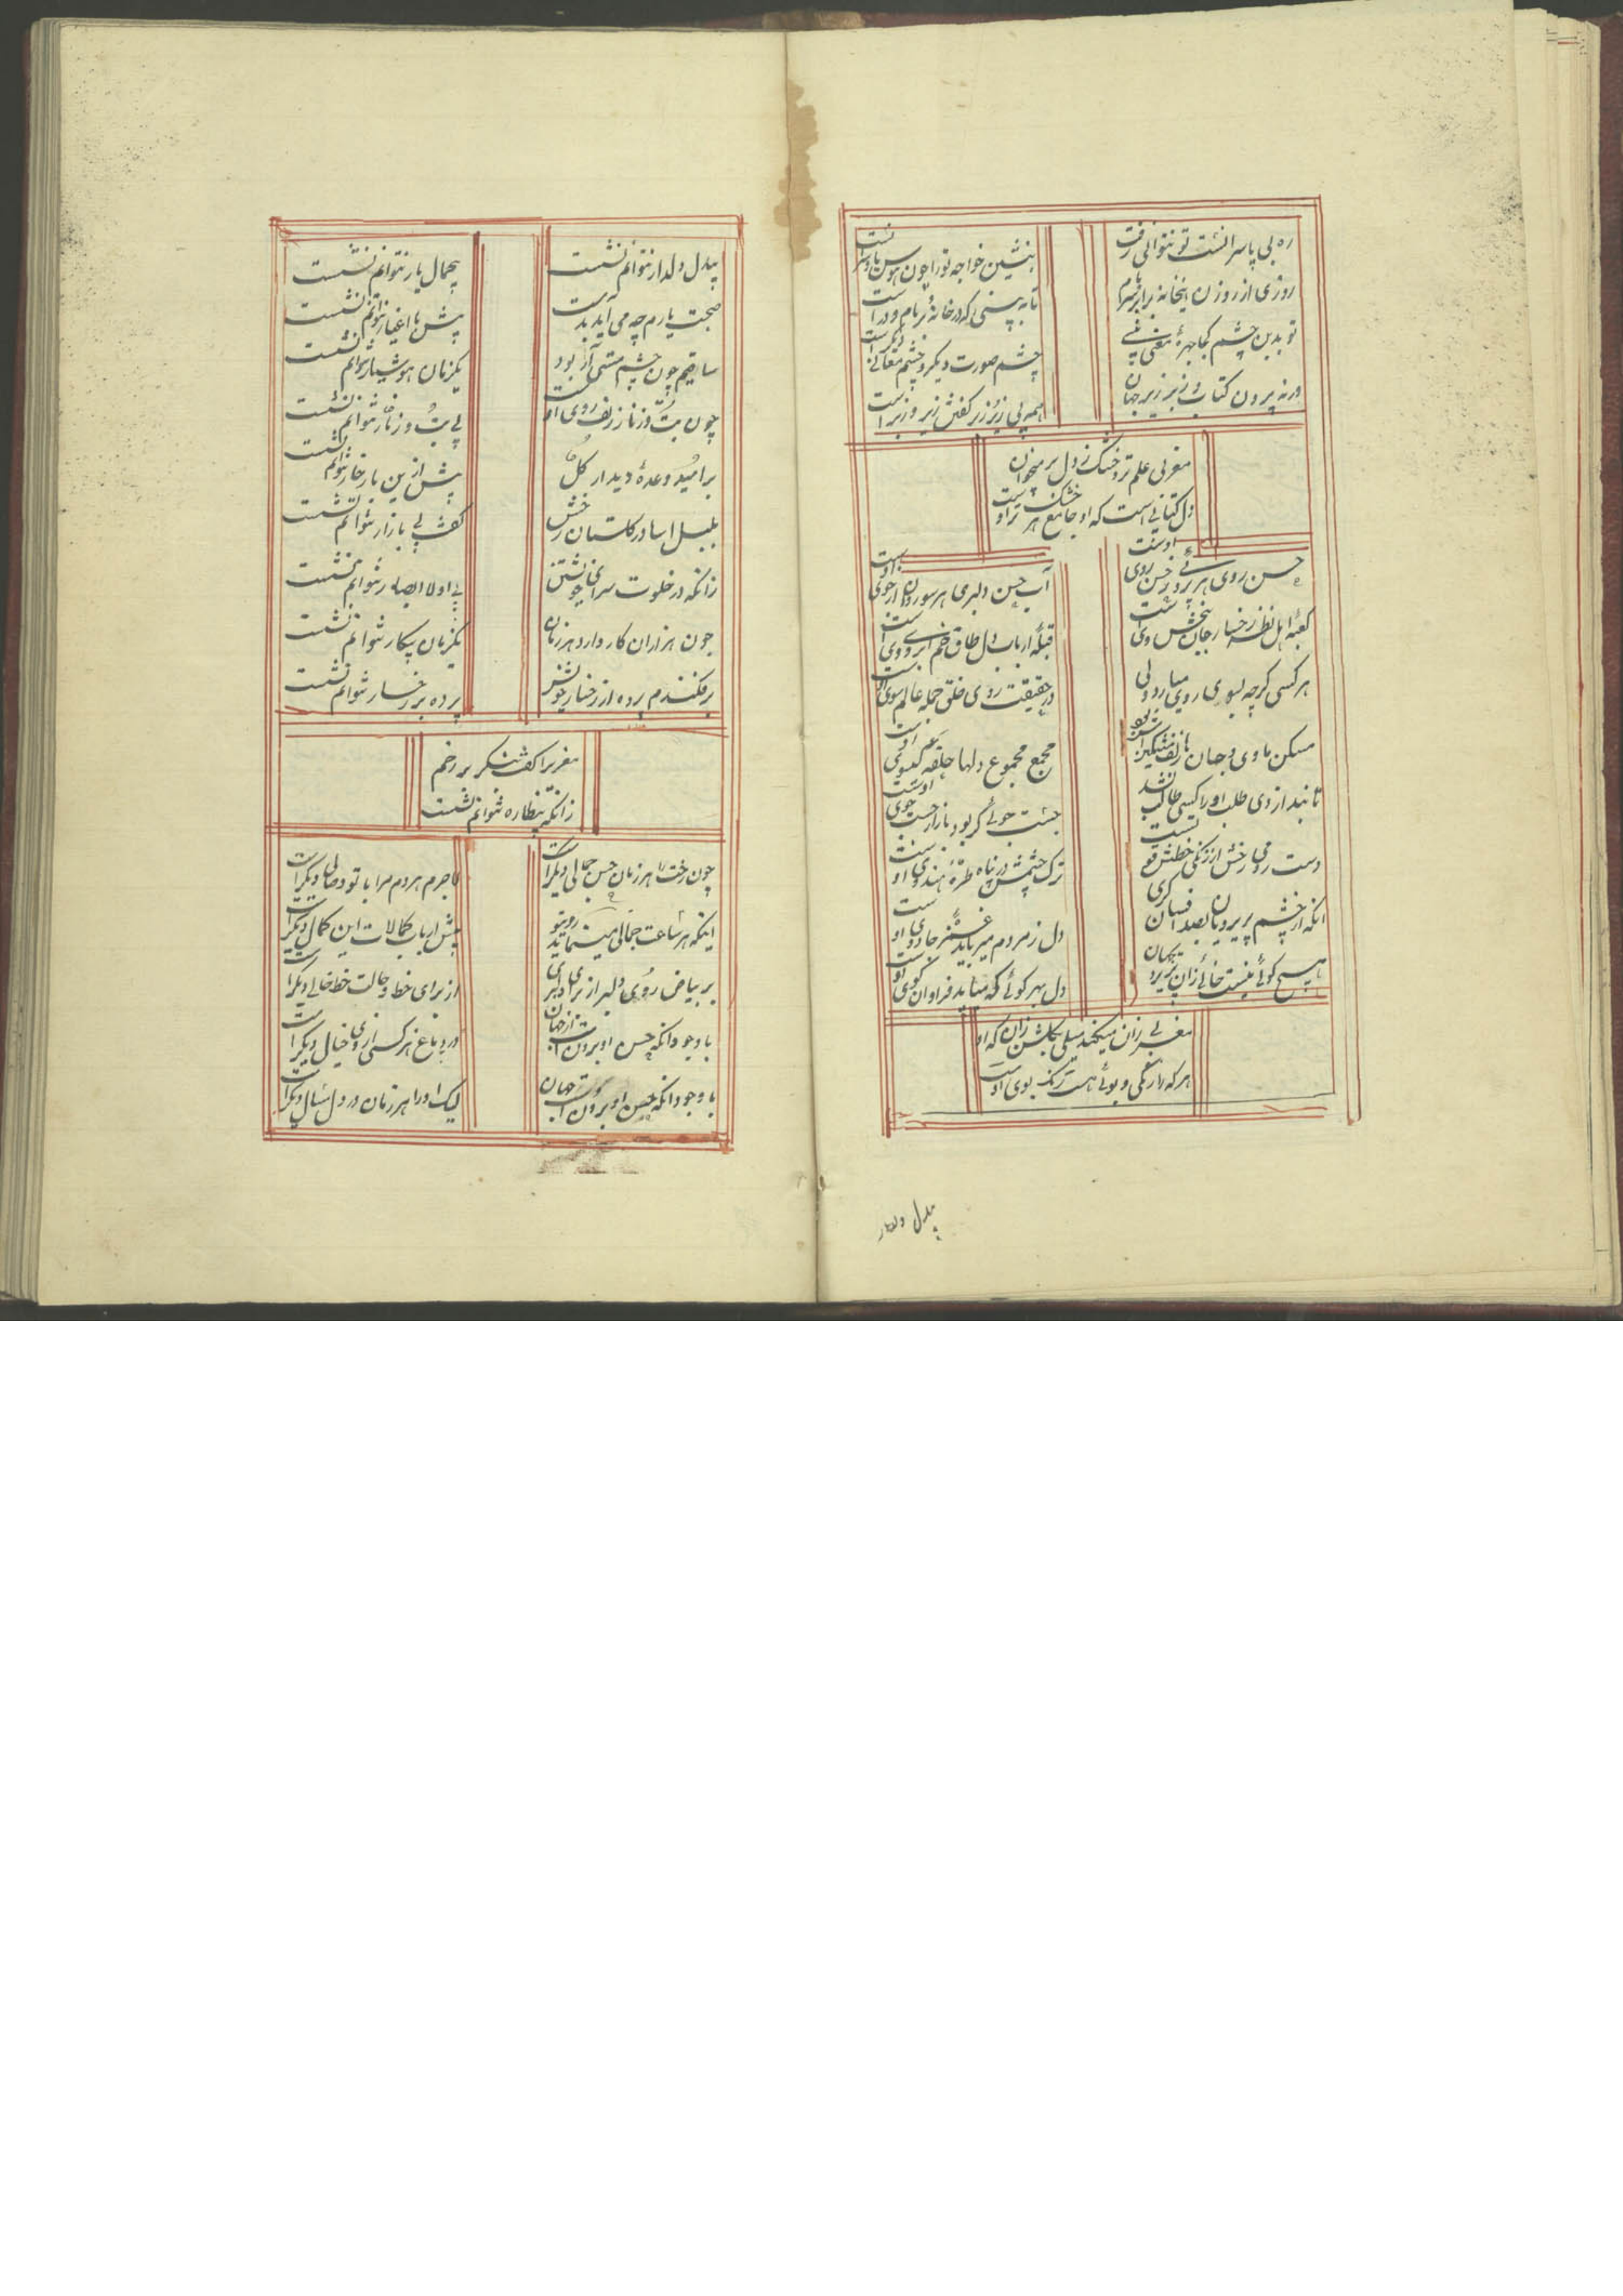 ره بی پا سرانست تو نتوانی رفت
بنشین خواجه تورا چون هوس پا و سر است
روزی از روزن اینخانه برابر بام
تا به بینی که درخانه بر بام و در است
تو بدین چشم کجا چهرهٔ معنی بینی
چشم صورت دیگر و چشم معانی دیگر است
ورنه بیرون کتاب و زبر زیر جهان
همه بی زیر و زبر کفتش زیر و زبر است
مغربی علم تر و خشک ز دل بر میخوان
دل کتابی است که او جامع هر خشک و تر است
حسن روی هر پریروئی ز حسن روی اوست
آب حسن دلبری هر سو روان از جوی اوست
کعبهٔ اهل نظر رخسار جان بخش وی است
قبلهٔ ارباب دل طاق خم ابروی اوست
هر کسی کرچه بسوی روی میارد ولی
در حقیقت روی خلق جمله عالم سوی اوست
مسکن ماوی و جان زلف مشکین
مجمع مجموع دلها حلقه کیسوی اوست
تا نبد از وی طلب او را کسی طالب نشد
جست جوئی کر بود ما را ز جست جوی اوست
دست رومی رخش از زنکی خطش قوی است
ترک چشمش در پناه طرهٔ هندوی اوست
انکه از چشم پریرویان بصد افسان کری
دل ز مردم میرباید غمزهٔ جادوی اوست
هیچ کوئی نیست خالی زان پریرو
دل بهر کوئی که میاید فراوان کوی اوست
مغربی زان میکند میلی بکلشن زان که او
هر که را رنکی و بوئی هست رنک بوی اوست
بیدل دلدار
بیدل دلدار نتوانم نشست
بیجمال یار نتوانم نشست
صحبت یارم چه می آید بدست
پیش با اغیار نتوانم نشست
ساقیم چون چشم مستی آر بود
یکزمان هوشیار نتوانم نشست
چون بت و زنار زلف روی اوست
بی بت و زنار نتوانم نشست
بر امید وعدهٔ دیدار کل
بیش ازین بار خار نتوانم نشست
بلبل اسا در کلستان رخش
کفت بی بازار نتوانم نشست
زانکه در خلوت سرای خویشتن
بی اولا ابصار نتوانم نشست
چون هزاران کار دارد هر زمان
یکزمان بیکار نتوانم نشست
برفکندم پرده از رخسار خویش
پرده بر رخسار نتوانم نشست
مغربرا کفت بنکر بر رخم
زانکه بنظاره نتوانم نشست
چون رخت را هر زمان حسن جمالی دیکر است
لاجرم هر دم مرا با تو وصالی دیکر است
اینکه هر ساعت جمالی مینماید روی تو
پیش ارباب کمالات این کمال دیکر است
بر بیاض روی دلبر از برای دلبری
از برای خط و خالت خط خالی دیکر است
با وجود انکه حسن او برونست از جهان
در دماغ هر کسی از وی خیال دیکر است
با وجود انکه حسن او برونست از جهان
لیک او را هر زمان در دل مثال دیکر است